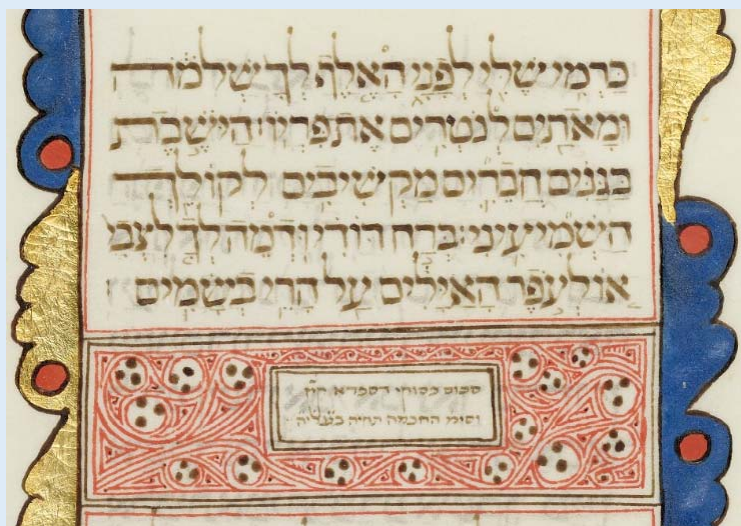 כַּרְמִי שֶׁלִּי לְפָנָי הָאֶלֶף לְךָ שְׁלֹמֹה
וּמָאתַיִם לְנֹטְרִים אֶת פִּרְיוֹ׃ הַיֹּשֶׁבֶת
בַּגַּנִּים חֲבֵרִים מַקְשִׁיבִים לְקוֹלֵךְ
הַשְׁמִיעִינִי׃ בְּרַח דּוֹדִי וּדְמֵה לְךָ לִצְבִי
אוֹ לְעֹפֶר הָאַיָּלִים עַל הָרֵי בְשָׂמִים
סכום פסוקי דספרא קי״ז
וסימ החכמה תחיה בעליה